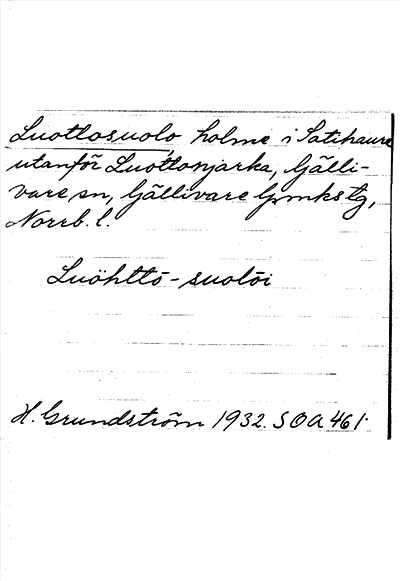 Luottosuolo holme i Satihaure
utanför Luottonjarka, Gälli-
vare sn, Gällivare lpmks tg,
Norrb. l.
Luöhttō-suolōi
H. Grundström 1932. SOA 461.